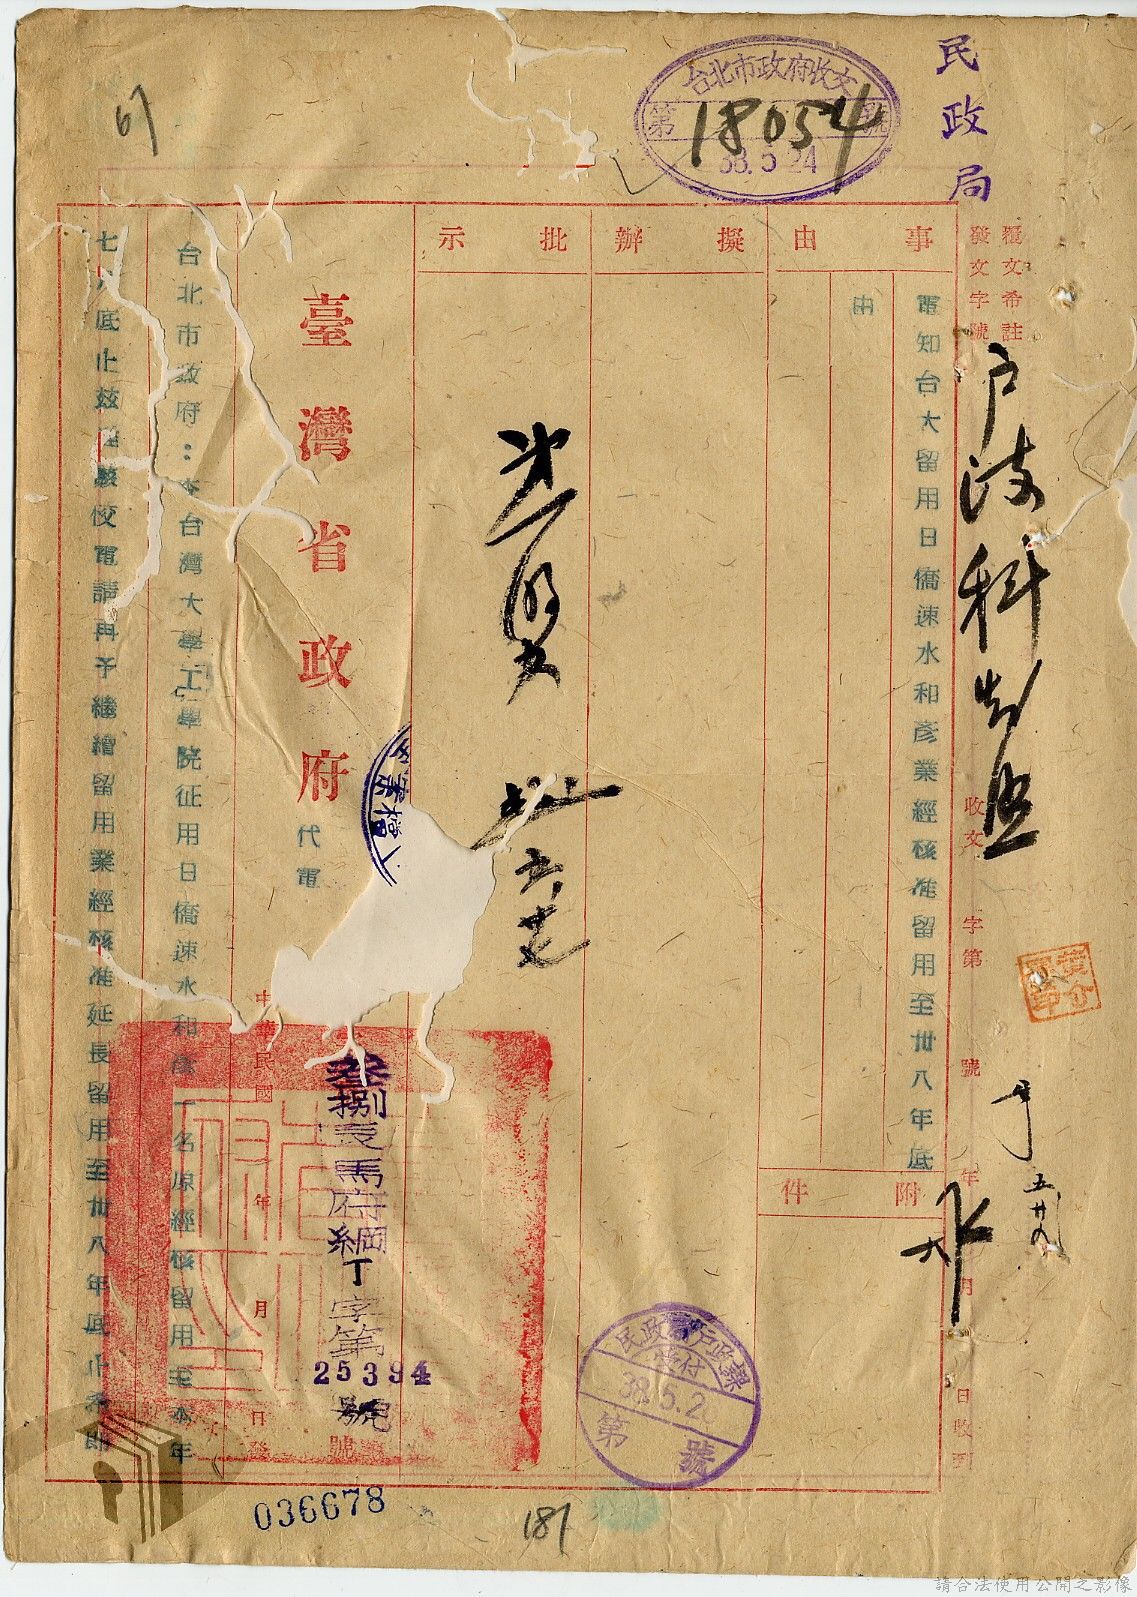 民政局
台北市政府收文
第 號
18054
38.5.24
67
覆文希註
發文字號
收文 字第 號
年 月 日收到
戶政科
五廿八
事由
擬辦
批示
電知台大留用日僑速水和彥業經核准留用至卅八年底
由
附件
臺灣省政府
代電
中華民國 年 月 日發
捌辰馬府綱丁字第
25394
號
號
台北市政府:查台灣大學工學院征用日僑速水和彥一名原經核留用至本年
七月底止茲 該校電請再予繼續留用業經核准延長留用至卅八年底止希即
民政 戶政
38.5.2
第 號
036678
181
請合法使用公開之影像